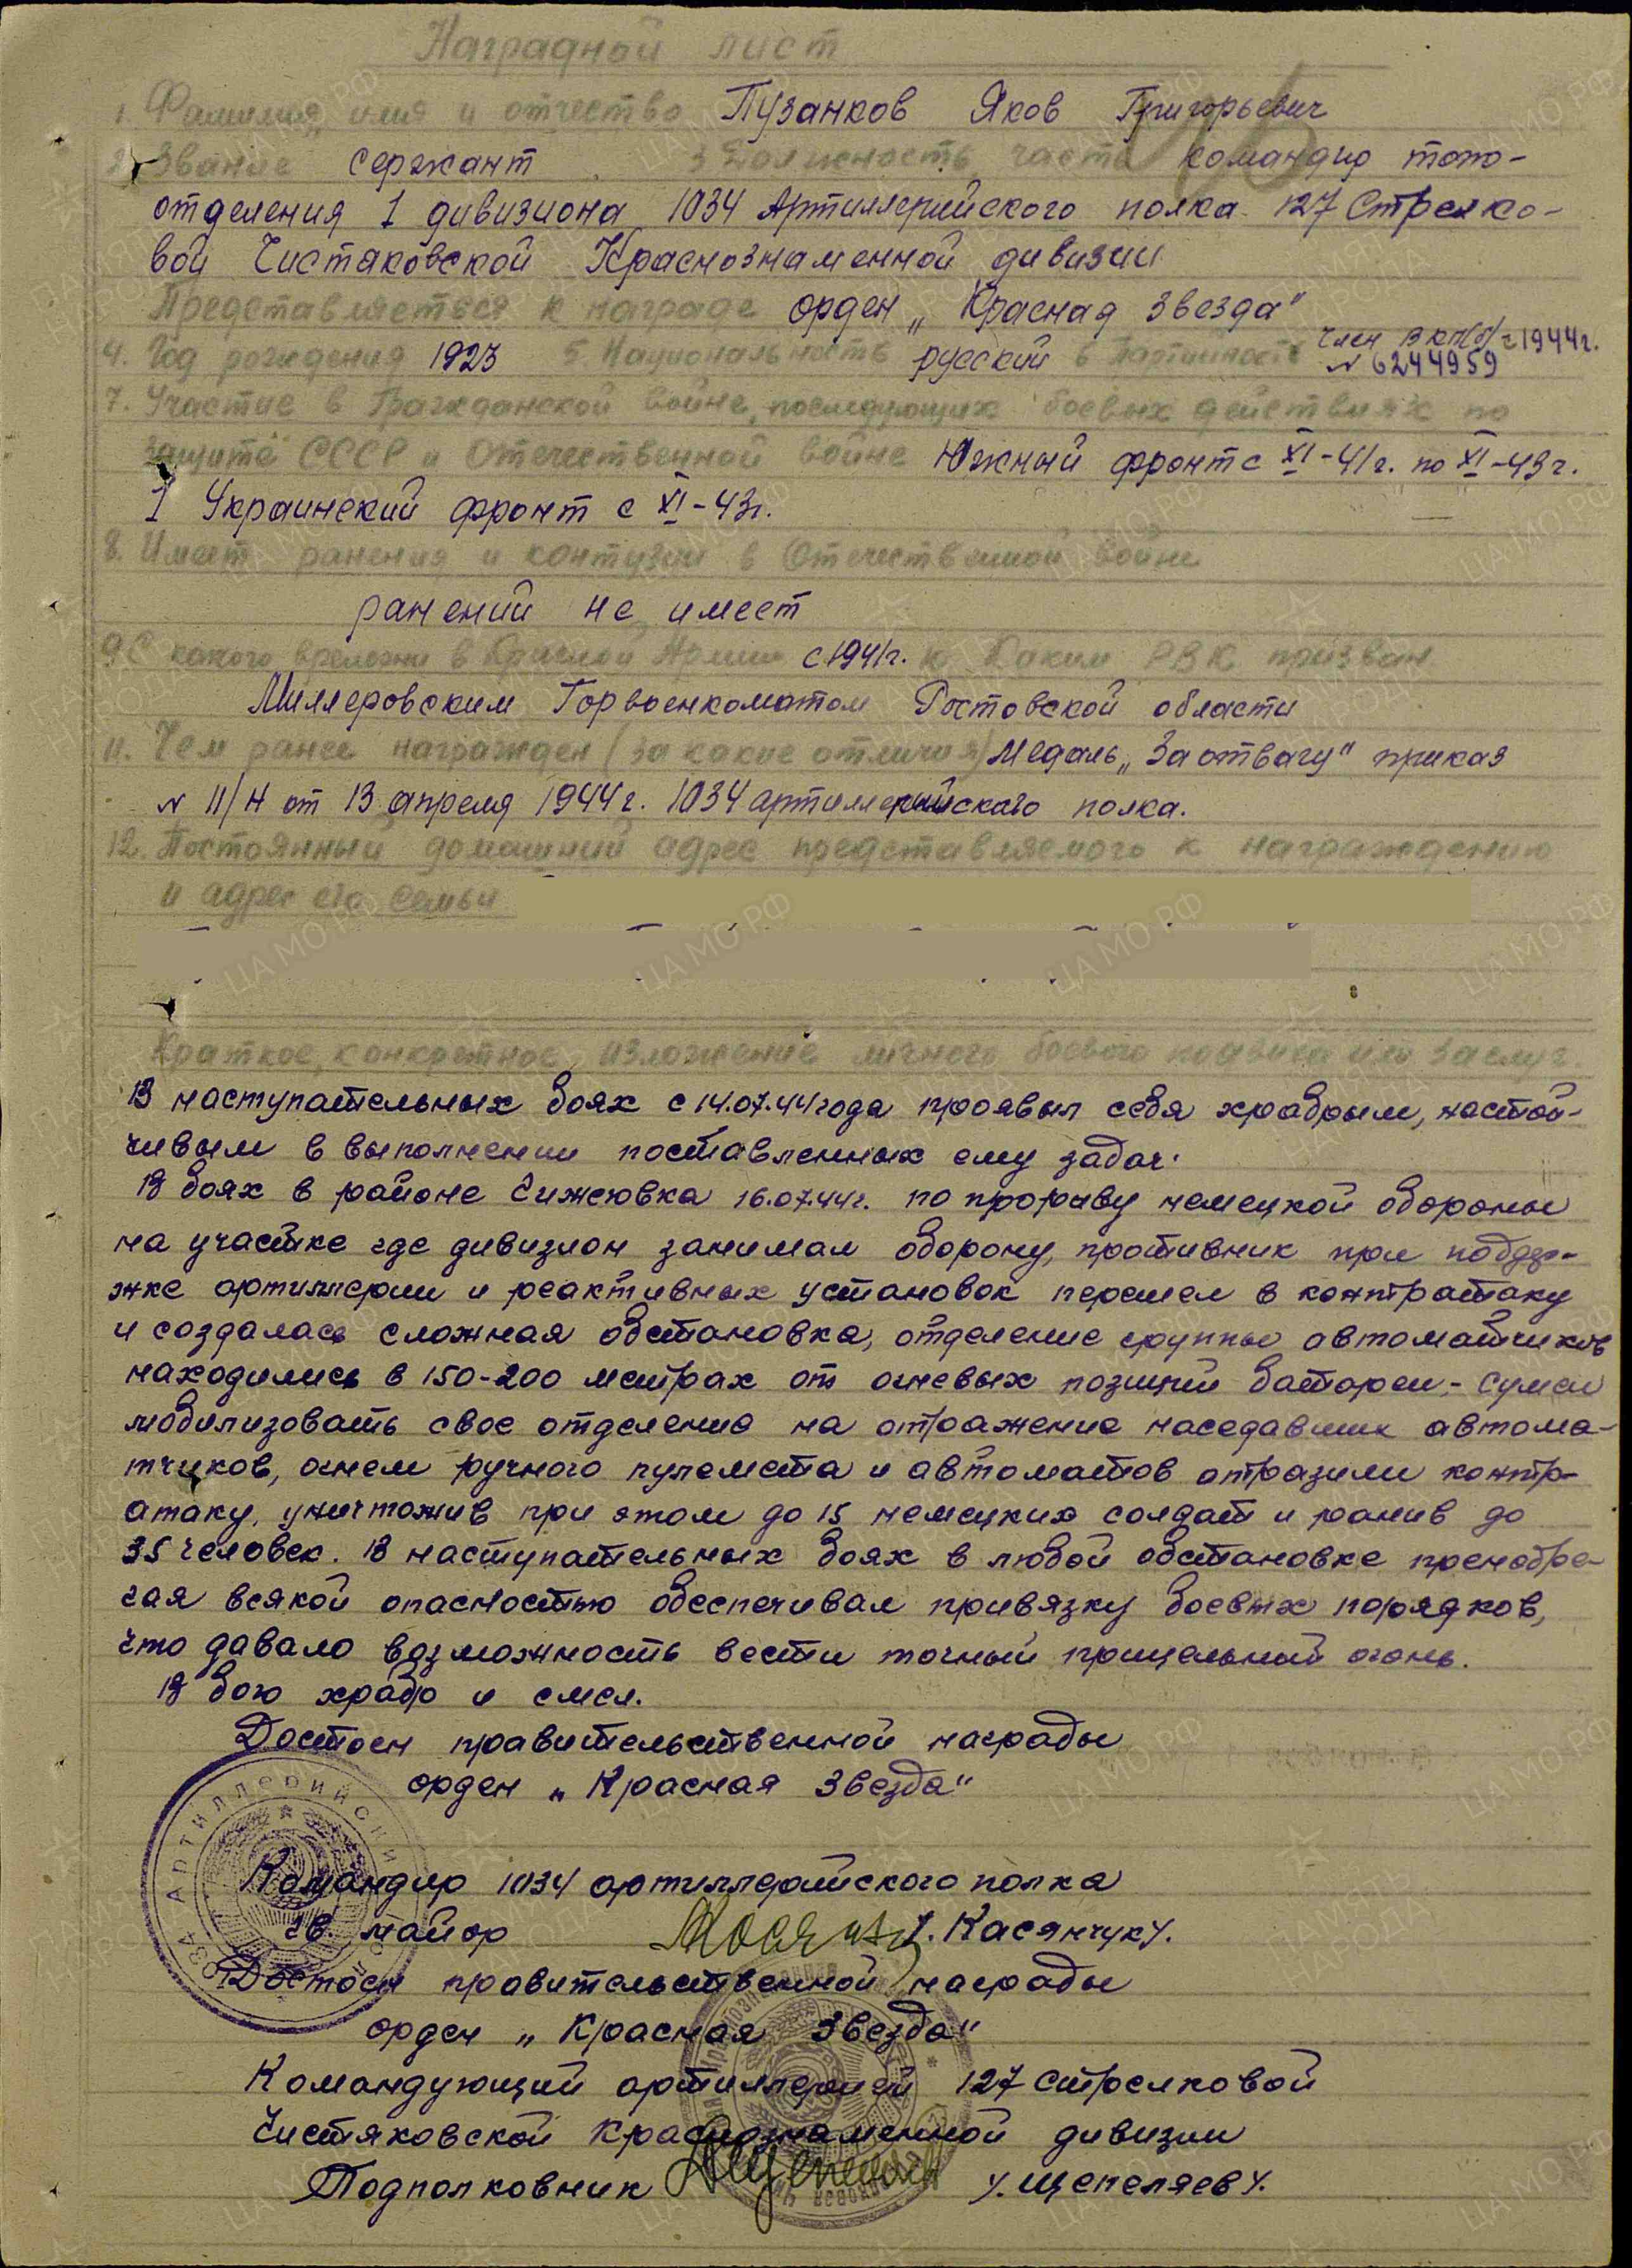 Наградной лист
1. Фамилия, имя и отчество Пузанков Яков Григорьевич
2. Звание сержант 3 Должность часть командир топо-
отделения 1 дивизиона 1034 Артиллерийского полка 127 Стрелко-
вой Чистяковской Краснознаменной дивизии
Представляется к награде орден „Красная Звезда"
4. Год рождения 1923 5. Национальность русский 6 Партийность член ВКП(б) с 1944г.
N 6244959
7. Участие в Гражданской войне, последующих боевых действиях по
защите СССР и Отечественной войне Южный фронт с XI-41г. по XI-43г.
1 Украинский фронт с XI-43г.
8. Имеет ранения и контузии в Отечественной войне
ранений не имеет
9 С какого времени в Красной Армии с 1941г. 10 Каким РВК призван
Миллеровским Горвоенкоматом Ростовской области
11. Чем ранее награжден (за какие отличия) Медаль „За отвагу" приказ
N 11/Н от 13 апреля 1944г. 1034 артиллерийского полка.
12. Постоянный домашний адрес представляемого к награждению
и адрес его семьи
Краткое, конкретное изложение личного боевого подвига или заслуг
В наступательных боях с 14.07.44 года проявил себя храбрым, настой-
чивым в выполнении поставленных ему задач.
В боях в районе Чижеювка 16.07.44г. по прорыву немецкой обороны
на участке где дивизион занимал оборону, противник при поддер-
жке артиллерии и реактивных установок перешел в контратаку
и создалась сложная обстановка, отделение группы автоматчиков
находились в 150-200 метрах от огневых позиций батареи,- сумел
мобилизовать свое отделение на отражение наседавших автома-
тчиков, огнем ручного пулемета и автоматов отразили контр-
атаку, уничтожив при этом до 15 немецких солдат и ранив до
35 человек. В наступательных боях в любой обстановке пренебре-
гая всякой опасностью обеспечивал привязку боевых порядков,
что давало возможность вести точный прицельный огонь.
В бою храбр и смел.
Достоен правительственной награды
орден „Красная Звезда"
Командир 1034 артиллерийского полка
гв. майор /. Касянчук /.
Достоен правительственной награды
орден „Красная Звезда"
Командующий артиллерией 127 стрелковой
Чистяковской Краснознаменной дивизии
Подполковник /. Щепеляев /.